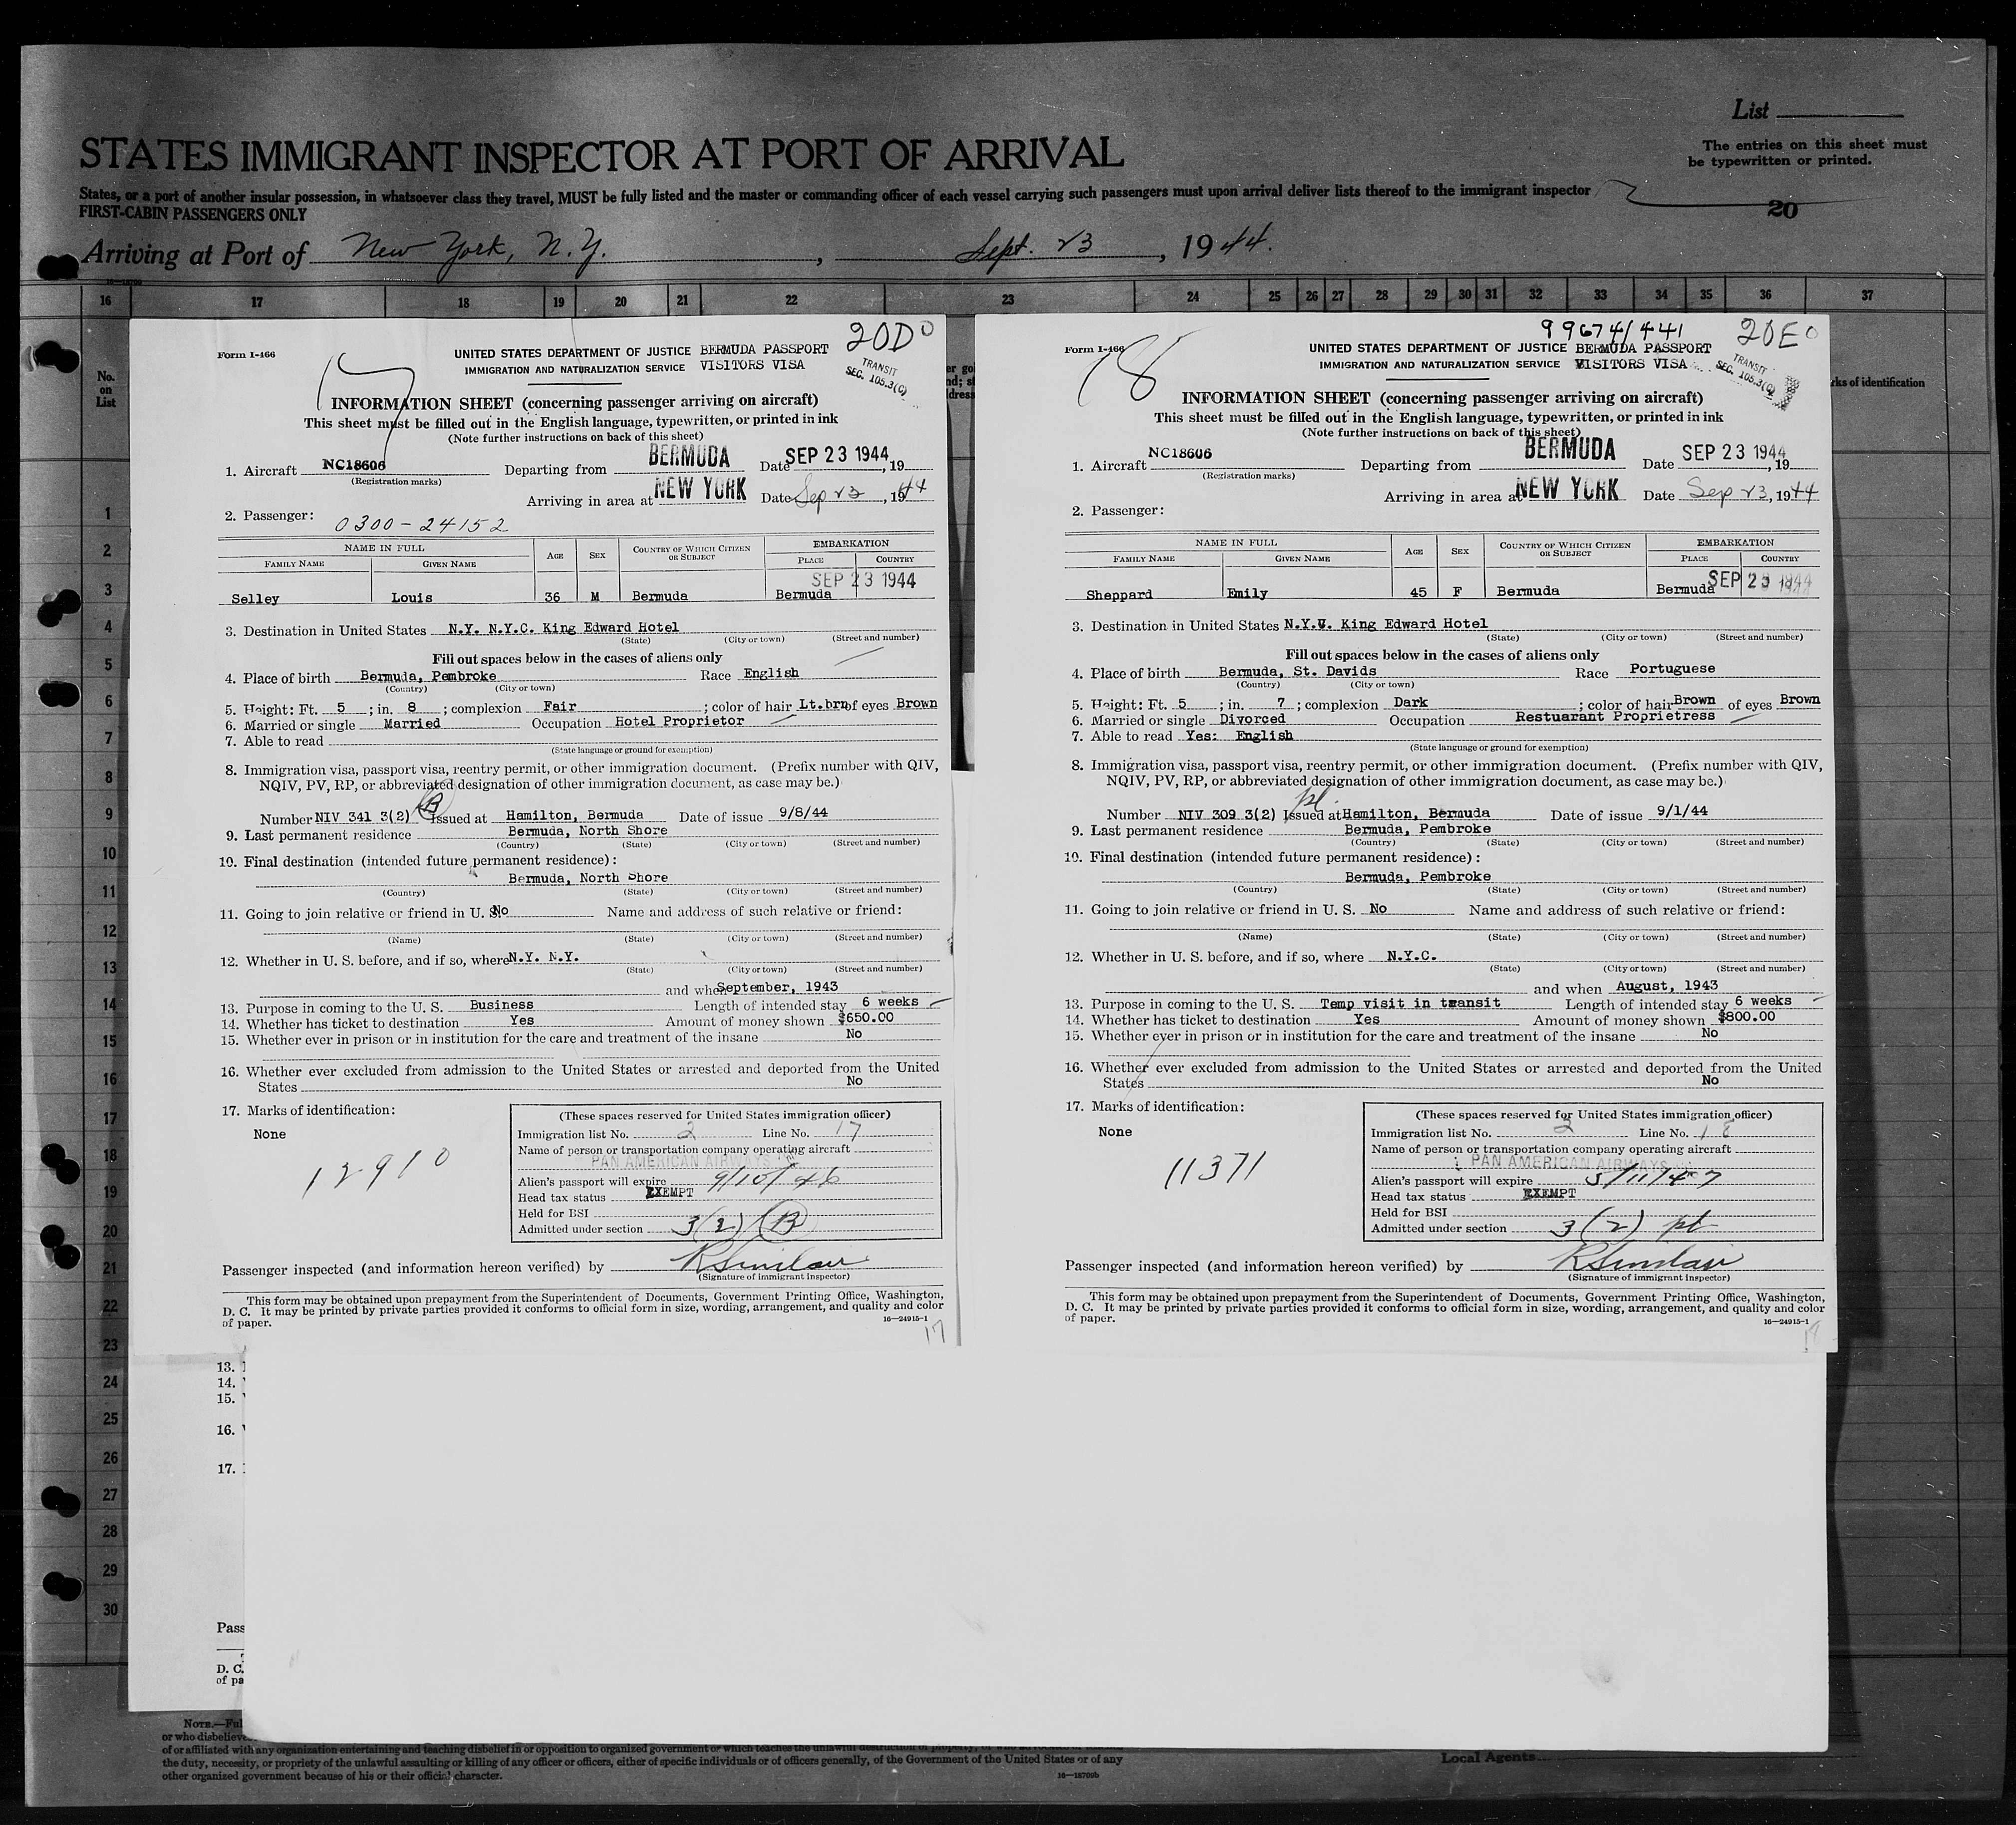 List
STATES IMMIGRANT INSPECTOR AT PORT OF ARRIVAL
The entries on this sheet must
be typewritten or printed.
States, or a port of another insular possession, in whatsoever class they travel, MUST be fully listed and the master or commanding officer of each vessel carrying such passengers must upon arrival deliver lists thereof to the immigrant inspector
FIRST-CABIN PASSENGERS ONLY
20
Arriving at Port of New York, N.Y. , Sept. 23 , 1944.
16 17 18 19 20 21 22 23 24 25 26 27 28 29 30 31 32 33 34 35 36 37
No.
on
List
rks of identification
1
2
3
4
5
6
7
8
9
10
11
12
13
14
15
16
17
18
19
20
21
22
23
24
25
26
27
28
29
30
17
20D0
Form I-466
UNITED STATES DEPARTMENT OF JUSTICE BERMUDA PASSPORT
IMMIGRATION AND NATURALIZATION SERVICE VISITORS VISA
TRANSIT
SEC. 105.3(C)
INFORMATION SHEET (concerning passenger arriving on aircraft)
This sheet must be filled out in the English language, typewritten, or printed in ink
(Note further instructions on back of this sheet)
1. Aircraft NC18606 Departing from BERMUDA Date SEP 23 1944, 19
(Registration marks)
Arriving in area at NEW YORK Date Sep 23, 1944
2. Passenger: 0300-24152
NAME IN FULL AGE SEX COUNTRY OF WHICH CITIZEN OR SUBJECT EMBARKATION
FAMILY NAME GIVEN NAME PLACE COUNTRY
SEP 23 1944
Selley Louis 36 M Bermuda Bermuda
3. Destination in United States N.Y. N.Y.C. King Edward Hotel
(State) (City or town) (Street and number)
Fill out spaces below in the cases of aliens only
4. Place of birth Bermuda, Pembroke Race English
(Country) (City or town)
5. Height: Ft. 5 ; in. 8 ; complexion Fair ; color of hair Lt.brn of eyes Brown
6. Married or single Married Occupation Hotel Proprietor
7. Able to read
(State language or ground for exemption)
8. Immigration visa, passport visa, reentry permit, or other immigration document. (Prefix number with QIV,
NQIV, PV, RP, or abbreviated designation of other immigration document, as case may be.)
Number NIV 341 3(2) B Issued at Hamilton, Bermuda Date of issue 9/8/44
9. Last permanent residence Bermuda, North Shore
(Country) (State) (City or town) (Street and number)
10. Final destination (intended future permanent residence):
Bermuda, North Shore
(Country) (State) (City or town) (Street and number)
11. Going to join relative or friend in U. S. No Name and address of such relative or friend:
(Name) (State) (City or town) (Street and number)
12. Whether in U. S. before, and if so, where N.Y. N.Y.
(State) (City or town) (Street and number)
and when September, 1943
13. Purpose in coming to the U. S. Business Length of intended stay 6 weeks
14. Whether has ticket to destination Yes Amount of money shown $650.00
15. Whether ever in prison or in institution for the care and treatment of the insane No
16. Whether ever excluded from admission to the United States or arrested and deported from the United
States No
17. Marks of identification:
None
12910
(These spaces reserved for United States immigration officer)
Immigration list No. 2 Line No. 17
Name of person or transportation company operating aircraft
PAN AMERICAN AIRWAYS
Alien's passport will expire 9/10/46
Head tax status EXEMPT
Held for BSI
Admitted under section 3(2) B
Passenger inspected (and information hereon verified) by RSinclair
(Signature of immigrant inspector)
This form may be obtained upon prepayment from the Superintendent of Documents, Government Printing Office, Washington,
D. C. It may be printed by private parties provided it conforms to official form in size, wording, arrangement, and quality and color
of paper.
16—24915-1
17
18
99674/441
20E0
Form I-466
UNITED STATES DEPARTMENT OF JUSTICE BERMUDA PASSPORT
IMMIGRATION AND NATURALIZATION SERVICE VISITORS VISA
TRANSIT
SEC. 105.3(C)
INFORMATION SHEET (concerning passenger arriving on aircraft)
This sheet must be filled out in the English language, typewritten, or printed in ink
(Note further instructions on back of this sheet)
1. Aircraft NC18606 Departing from BERMUDA Date SEP 23 1944, 19
(Registration marks)
Arriving in area at NEW YORK Date Sep 23, 1944
2. Passenger:
NAME IN FULL AGE SEX COUNTRY OF WHICH CITIZEN OR SUBJECT EMBARKATION
FAMILY NAME GIVEN NAME PLACE COUNTRY
Sheppard Emily 45 F Bermuda Bermuda SEP 23 1944
3. Destination in United States N.Y.U. King Edward Hotel
(State) (City or town) (Street and number)
Fill out spaces below in the cases of aliens only
4. Place of birth Bermuda, St. Davids Race Portuguese
(Country) (City or town)
5. Height: Ft. 5 ; in. 7 ; complexion Dark ; color of hair Brown of eyes Brown
6. Married or single Divorced Occupation Restuarant Proprietress
7. Able to read Yes: English
(State language or ground for exemption)
8. Immigration visa, passport visa, reentry permit, or other immigration document. (Prefix number with QIV,
NQIV, PV, RP, or abbreviated designation of other immigration document, as case may be.)
Number NIV 309 3(2) pl. Issued at Hamilton, Bermuda Date of issue 9/1/44
9. Last permanent residence Bermuda, Pembroke
(Country) (State) (City or town) (Street and number)
10. Final destination (intended future permanent residence):
Bermuda, Pembroke
(Country) (State) (City or town) (Street and number)
11. Going to join relative or friend in U. S. No Name and address of such relative or friend:
(Name) (State) (City or town) (Street and number)
12. Whether in U. S. before, and if so, where N.Y.C.
(State) (City or town) (Street and number)
and when August, 1943
13. Purpose in coming to the U. S. Temp visit in transit Length of intended stay 6 weeks
14. Whether has ticket to destination Yes Amount of money shown $800.00
15. Whether ever in prison or in institution for the care and treatment of the insane No
16. Whether ever excluded from admission to the United States or arrested and deported from the United
States No
17. Marks of identification:
None
11371
(These spaces reserved for United States immigration officer)
Immigration list No. 2 Line No. 18
Name of person or transportation company operating aircraft
PAN AMERICAN AIRWAYS
Alien's passport will expire 5/11/47
Head tax status EXEMPT
Held for BSI
Admitted under section 3(2) pl
Passenger inspected (and information hereon verified) by RSinclair
(Signature of immigrant inspector)
This form may be obtained upon prepayment from the Superintendent of Documents, Government Printing Office, Washington,
D. C. It may be printed by private parties provided it conforms to official form in size, wording, arrangement, and quality and color
of paper.
16—24915-1
18
13.
14.
15.
16.
17.
Pass
D. C.
of pa
NOTE.—Ful
or who disbelieve
of or affiliated with any organization entertaining and teaching disbelief in or opposition to organized government or which teaches the unlawful destruction of property, or who
the duty, necessity, or propriety of the unlawful assaulting or killing of any officer or officers, either of specific individuals or of officers generally, of the Government of the United States or of any
other organized government because of his or their official character.
16—18709b
Local Agents